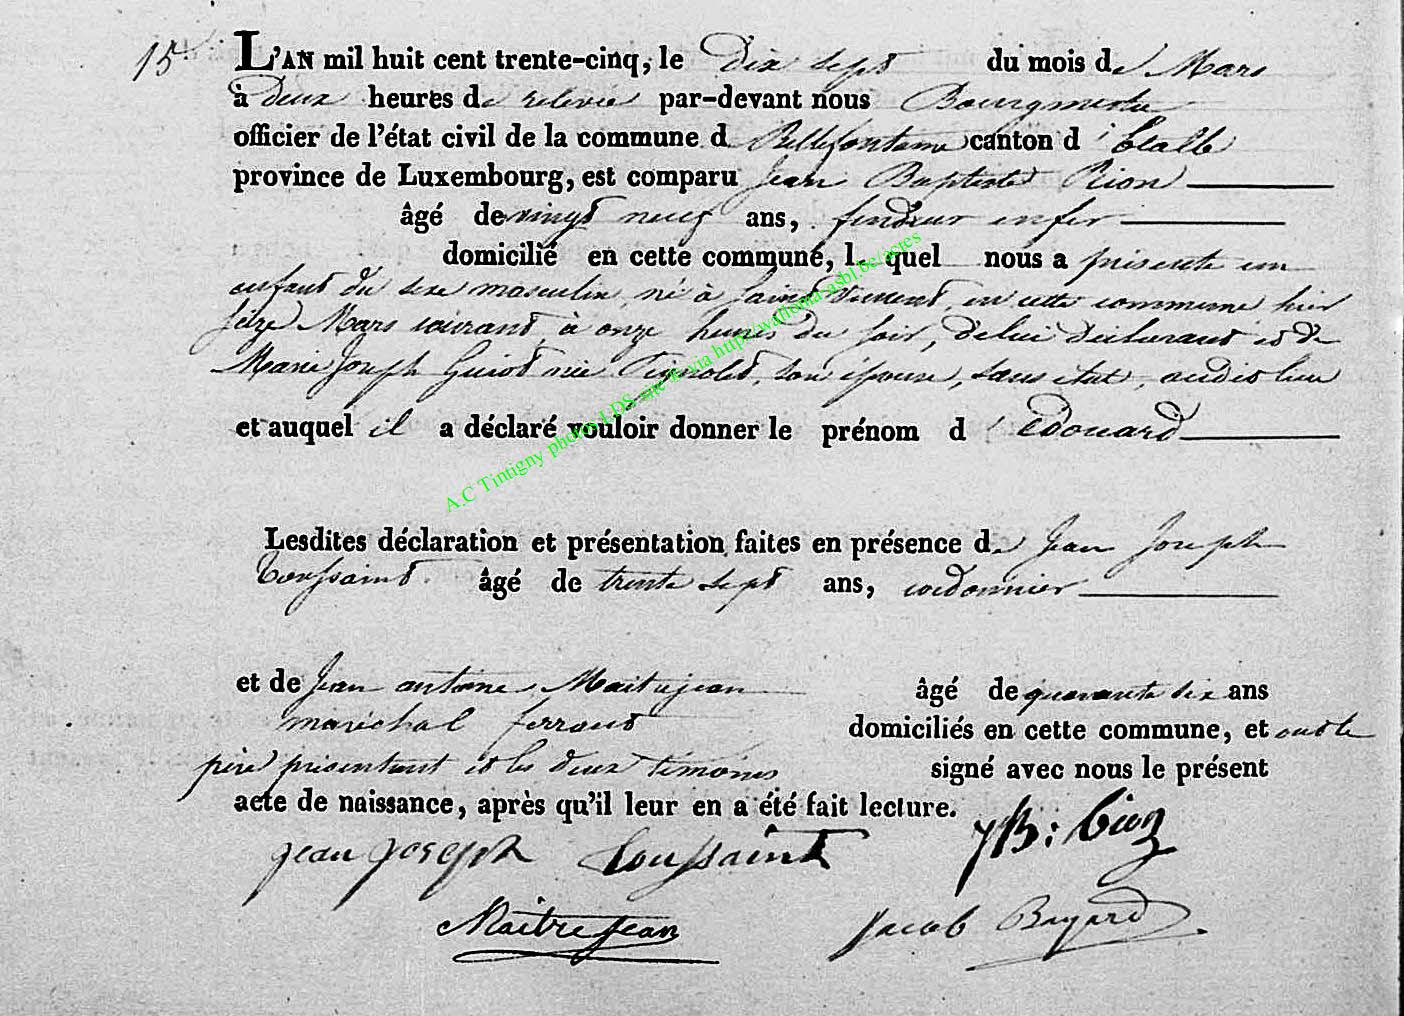 15 L'AN mil huit cent trente-cinq, le dix sept du mois de Mars
à deux heures de relevée par-devant nous Bourgmestre
officier de l'état civil de la commune de Bellefontaine canton d'Etalle
province de Luxembourg, est comparu Jean Baptiste Rion
âgé de vingt neuf ans, fendeur en fer
domicilié en cette commune, lequel nous a présenté un
enfant du sexe masculin, né à Saint Vincent, en cette commune hier
seize Mars courant, à onze heures du soir, de lui déclarant et de
Marie Joseph Guiot née son épouse, sans état, audit lieu
et auquel il a déclaré vouloir donner le prénom d'Edouard
A.C Tintigny photos LDS via http://wallonia-asbl.be/actes
Lesdites déclaration et présentation faites en présence de Jean Joseph
Toussaint âgé de trente sept ans, cordonnier
et de Jean antoine Maitrejean âgé de quarante six ans
maréchal ferrant domiciliés en cette commune, et ont le
père présentant et les deux témoins signé avec nous le présent
acte de naissance, après qu'il leur en a été fait lecture.
jean joseph toussaint JB: Rion
Maitrejean Jacob Bayard